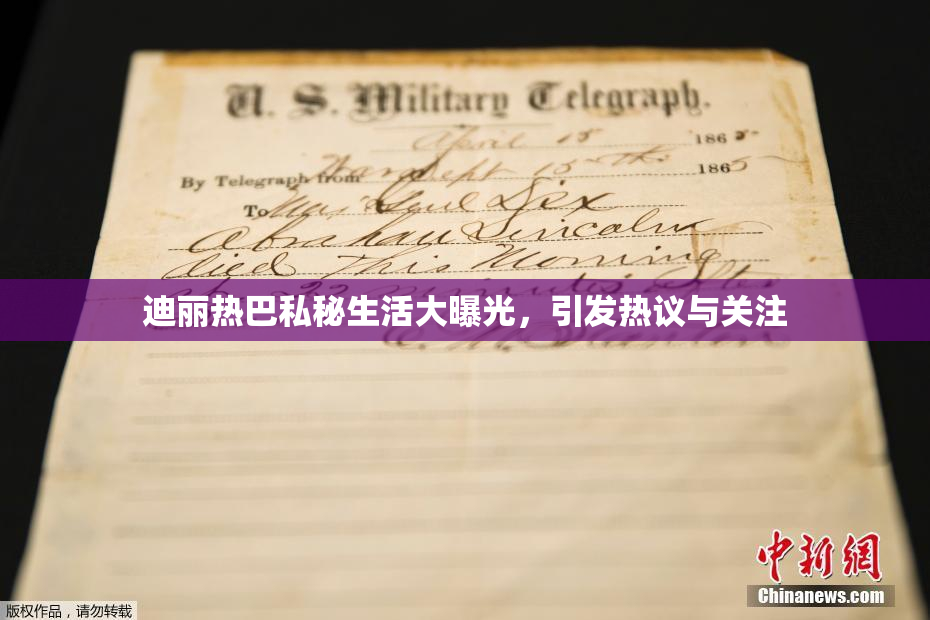 U. S. Military Telegraph.
April 15 1865
By Telegraph from War Dept 15th 1865
To Maj Genl Dix
Abraham Lincoln
died This Morning
at 22 minutes after
迪丽热巴私秘生活大曝光，引发热议与关注
E. M. Stanton
中新网
Chinanews.com
版权作品，请勿转载